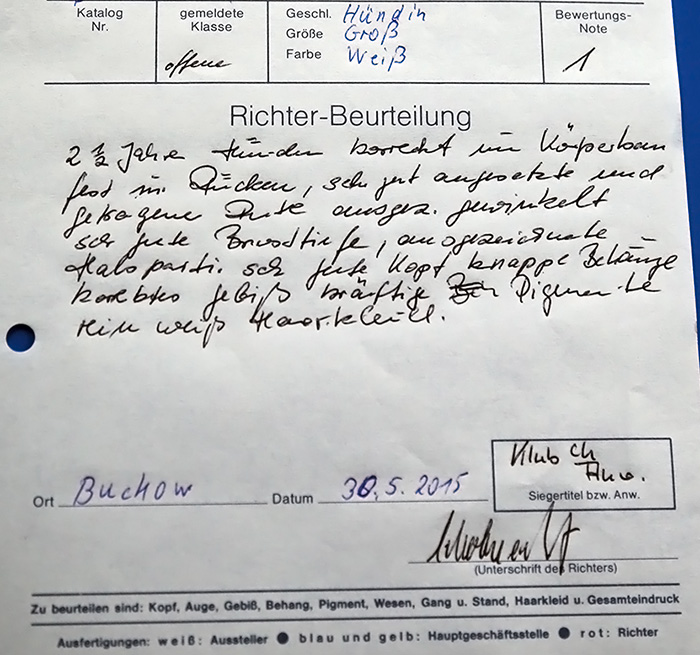 Katalog Nr.
gemeldete Klasse
offene
Geschl. Hündin
Größe Groß
Farbe Weiß
Bewertungs-Note
1
Richter-Beurteilung
2 ½ Jahre Hündin korrekt im Körperbau
fest im Rücken, sehr gut angesetzte und
getragene Rute ausgez. gewinkelt
sehr gute Brusttiefe, ausgezeichnete
Halspartie sehr gute Kopf knappe Behänge
korektes gebiß kräftige Pigmente
rein weiß Haarkleid.
Ort Buckow Datum 30.5.2015
Klub Ch
Anw.
Siegertitel bzw. Anw.
(Unterschrift des Richters)
Zu beurteilen sind: Kopf, Auge, Gebiß, Behang, Pigment, Wesen, Gang u. Stand, Haarkleid u. Gesamteindruck
Ausfertigungen: weiß: Aussteller ● blau und gelb: Hauptgeschäftsstelle ● rot: Richter